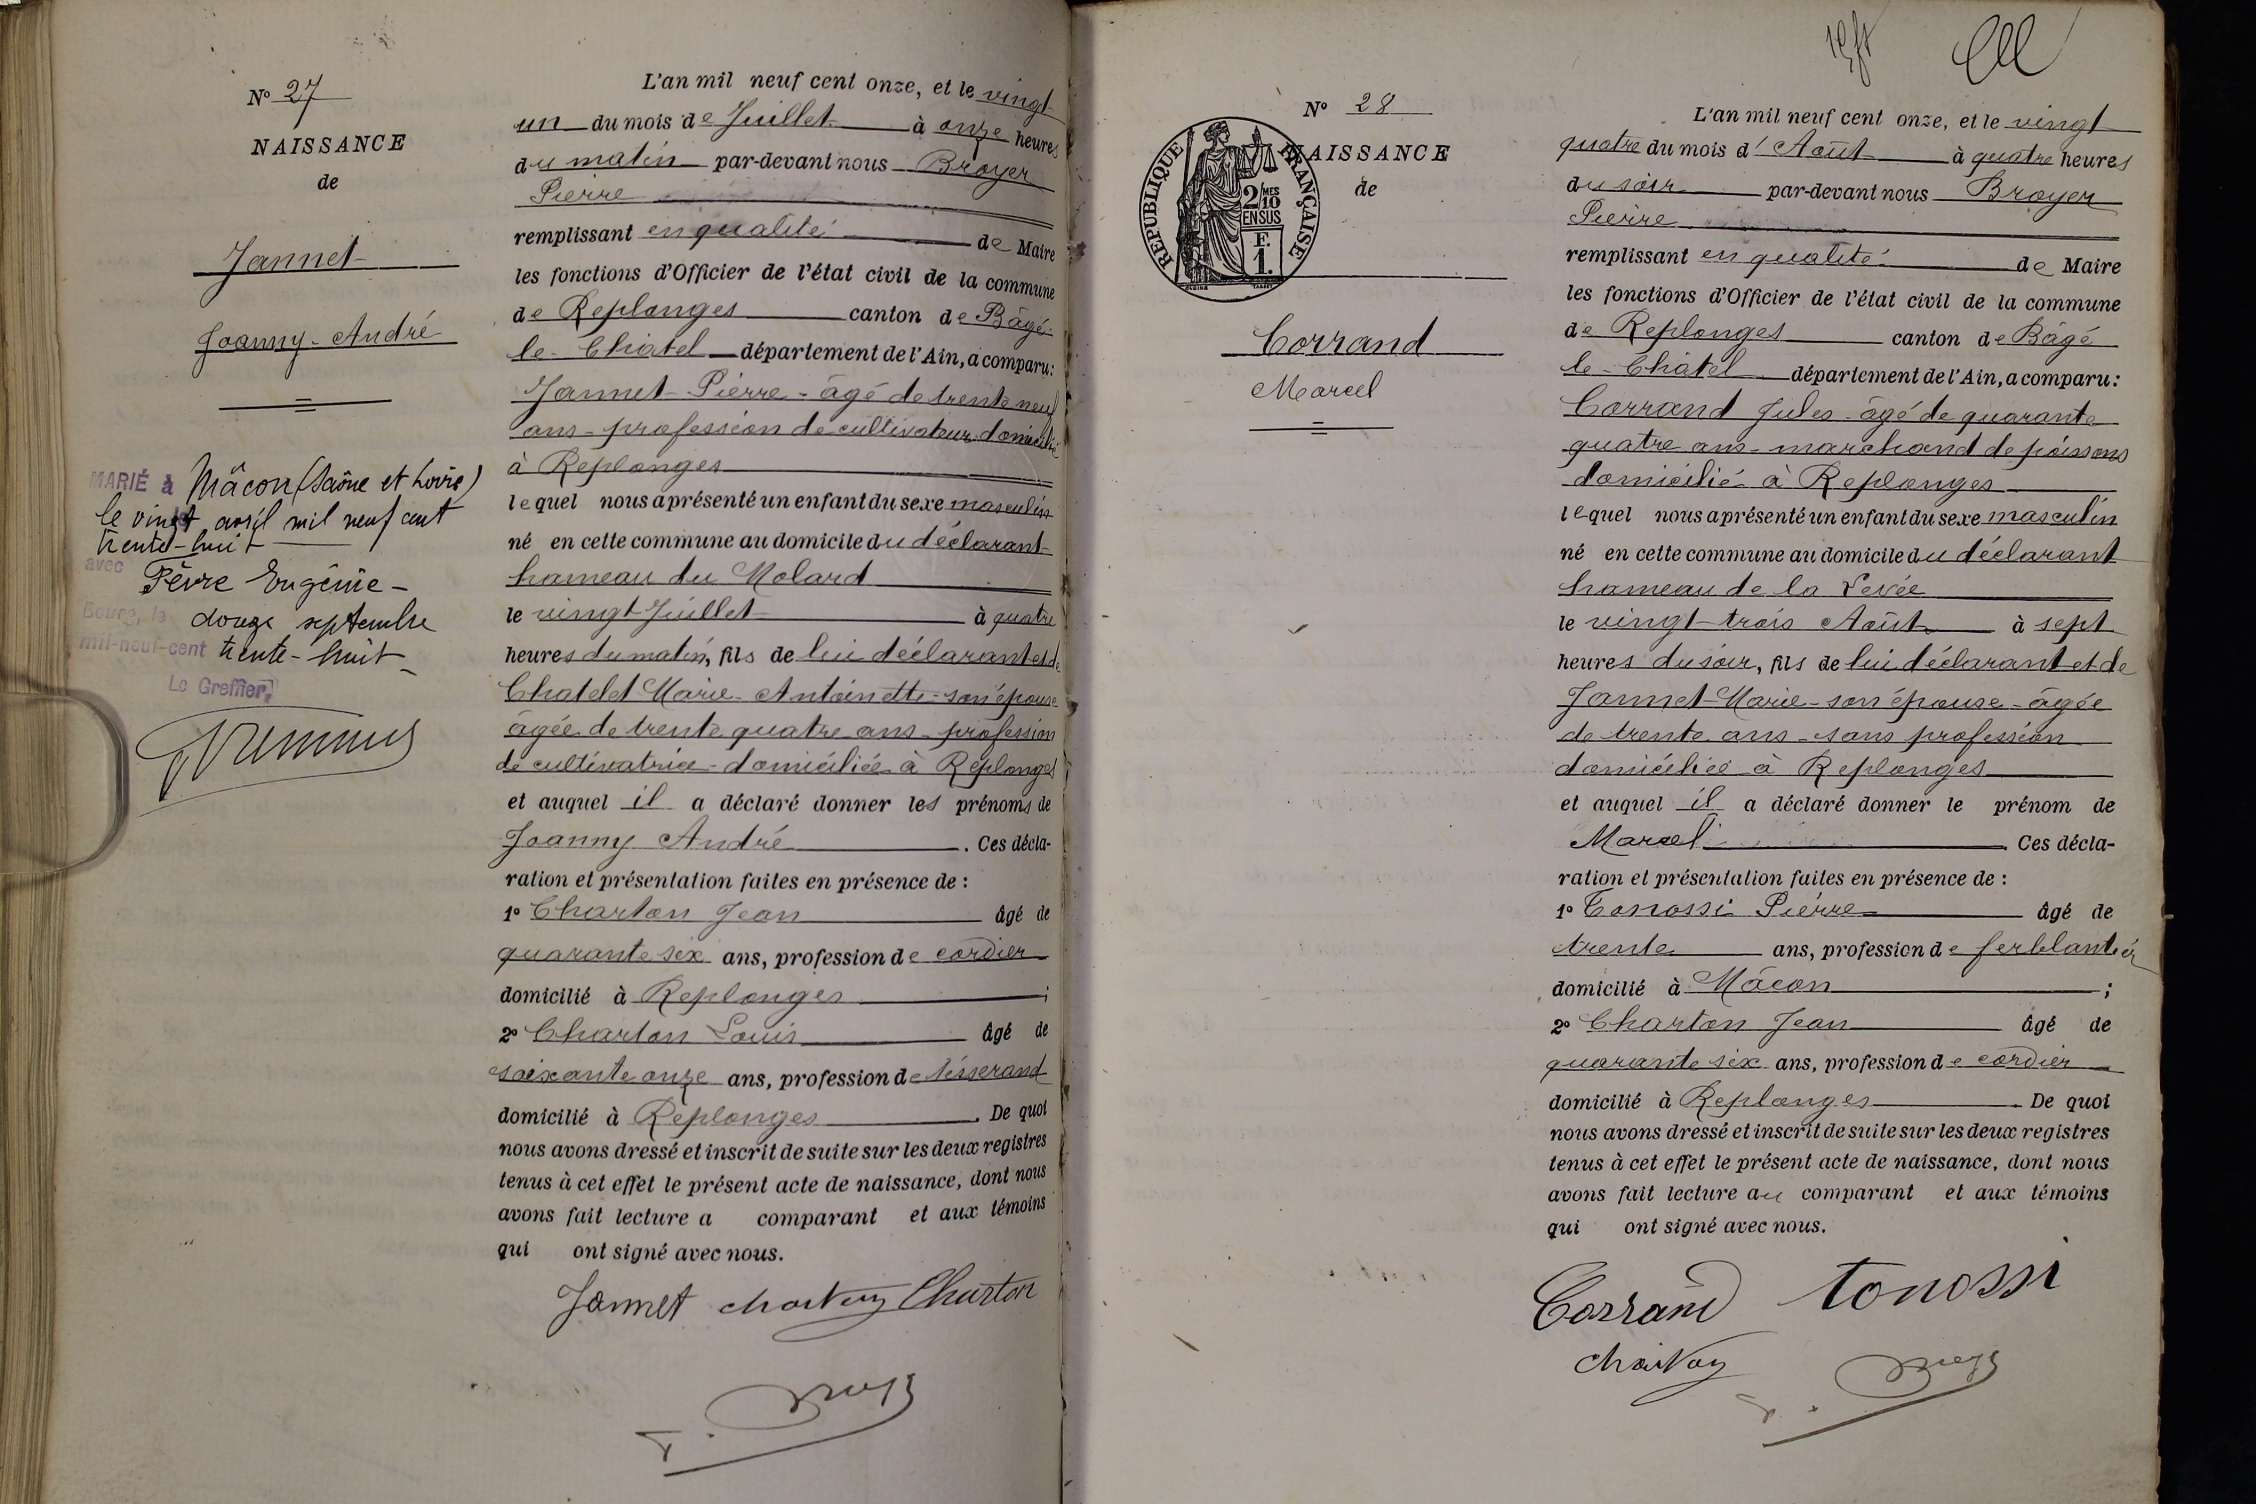 N° 27
NAISSANCE
de
Jannet
Joanny-André
MARIÉ à Mâcon (Saône et Loire)
le vingt avril mil neuf cent
trente-huit
avec Fèvre Eugénie -
Bourg, le douze septembre
mil-neuf-cent trente-huit
Le Greffier,
L'an mil neuf cent onze, et le vingt
un du mois de Juillet à onze heures
du matin par-devant nous Broyer
Pierre
remplissant en qualité de Maire
les fonctions d'Officier de l'état civil de la commune
de Replonges canton de Bâgé-
le-Châtel département de l'Ain, a comparu:
Jannet Pierre - âgé de trente neuf
ans - profession de cultivateur domicilié
à Replonges
lequel nous a présenté un enfant du sexe masculin
né en cette commune au domicile du déclarant
hameau du Molard
le vingt Juillet à quatre
heures du matin, fils de lui déclarant et de
Chatelet Marie-Antoinette - son épouse
âgée de trente quatre ans - profession
de cultivatrice - domiciliée à Replonges
et auquel il a déclaré donner les prénoms de
Joanny André. Ces décla-
ration et présentation faites en présence de :
1° Charton Jean âgé de
quarante six ans, profession de cordier
domicilié à Replonges ;
2° Charton Louis âgé de
soixante onze ans, profession de tisserand
domicilié à Replonges. De quoi
nous avons dressé et inscrit de suite sur les deux registres
tenus à cet effet le présent acte de naissance, dont nous
avons fait lecture a comparant et aux témoins
qui ont signé avec nous.
Jannet Charton Charton
N° 28
NAISSANCE
de
RÉPUBLIQUE FRANÇAISE
2/10 MES
EN SUS
F.
1.
Corrand
Marcel
L'an mil neuf cent onze, et le vingt
quatre du mois d'Août à quatre heures
du soir par-devant nous Broyer
Pierre
remplissant en qualité de Maire
les fonctions d'Officier de l'état civil de la commune
de Replonges canton de Bâgé
le-Châtel département de l'Ain, a comparu:
Corrand Jules - âgé de quarante
quatre ans - marchand de poissons
domicilié à Replonges
lequel nous a présenté un enfant du sexe masculin
né en cette commune au domicile du déclarant
hameau de la Levée
le vingt-trois Août à sept
heures du soir, fils de lui déclarant et de
Jannet Marie - son épouse - âgée
de trente ans - sans profession
domiciliée à Replonges
et auquel il a déclaré donner le prénom de
Marcel. Ces décla-
ration et présentation faites en présence de :
1° Tonossi Pierre âgé de
trente ans, profession de ferblantier
domicilié à Mâcon ;
2° Charton Jean âgé de
quarante six ans, profession de cordier
domicilié à Replonges. De quoi
nous avons dressé et inscrit de suite sur les deux registres
tenus à cet effet le présent acte de naissance, dont nous
avons fait lecture au comparant et aux témoins
qui ont signé avec nous.
Corrand Tonossi
Charton